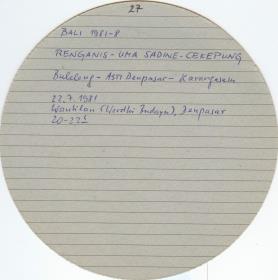 27
BALI 1981-8
RENGANIS - UMA SADINE - CEKEPUNG
Buleleng - ASTI Denpasar - Karangasem
22.7.1981
Wantilan (Werdhi Budaya), Denpasar
20-22h